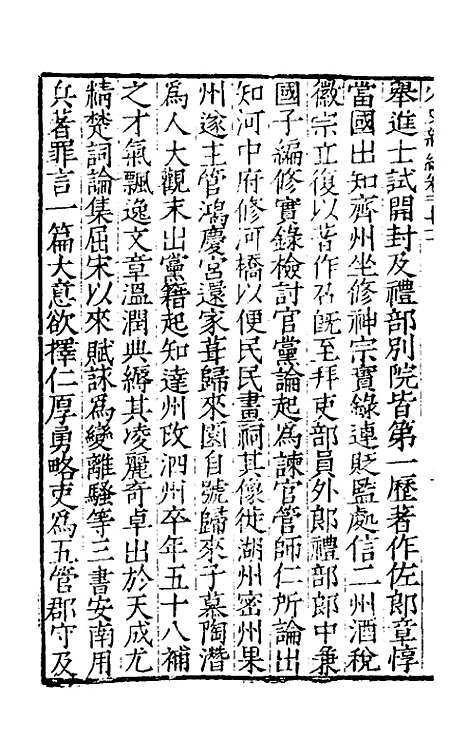 舉進士試開封及禮部別院皆第一歷著作佐郎章惇
當國出知齊州坐修神宗實錄連貶監處信二州酒稅
徽宗立復以著作召旣至拜吏部員外郎禮部郎中兼
國子編修實錄檢討官黨論起爲諫官管師仁所論出
知河中府修河橋以便民民畫祠其像徙湖州密州果
州遂主管鴻慶宮還家葺歸來園自號歸來子慕陶潛
爲人大觀末出黨籍起知達州改泗州卒年五十八補
之才氣飄逸文章溫潤典縟其凌麗奇卓出於天成尤
精楚詞論集屈宋以來賦詠爲變離騷等三書安南用
兵著罪言一篇大意欲擇仁厚勇略吏爲五管郡守及